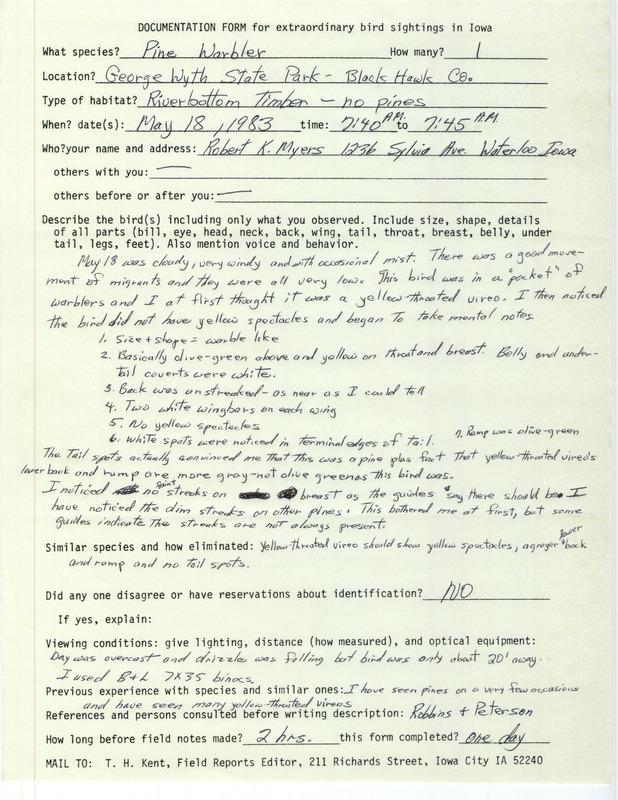 DOCUMENTATION FORM for extraordinary bird sightings in Iowa
What species? Pine Warbler How many? 1
Location? George Wyth State Park - Black Hawk Co.
Type of habitat? Riverbottom Timber - no pines
When? date(s): May 18, 1983 time: 7:40 A.M. to 7:45 A.M.
Who?your name and address: Robert K. Myers 1236 Sylvia Ave. Waterloo Iowa
others with you: —
others before or after you: —
Describe the bird(s) including only what you observed. Include size, shape, details
of all parts (bill, eye, head, neck, back, wing, tail, throat, breast, belly, under
tail, legs, feet). Also mention voice and behavior.
May 18 was cloudy, very windy and with occasional mist. There was a good move-
ment of migrants and they were all very low. This bird was in a "pocket" of
warblers and I at first thought it was a yellow-throated vireo. I then noticed
the bird did not have yellow spectacles and began To take mental notes.
1. Size + shape = warble like
2. Basically olive-green above and yellow on throat and breast. Belly and under-
tail coverts were white.
3. Back was unstreaked - as near as I could tell
4. Two white wingbars on each wing
5. No yellow spectacles
6. White spots were noticed in Terminal edges of tail. 7. Rump was olive-green
The Tail spots actually convinced me that this was a pine plus fact That yellow-throated vireo's
lower back and rump are more gray - not olive green as this bird was.
I noticed no faint streaks on breast as the guides say there should be. I
have noticed the dim streaks on other pines. This bothered me at first, but some
guides indicate The streaks are not always present.
Similar species and how eliminated: Yellow-throated vireo should show yellow spectacles, a grayer lower back
and rump and no tail spots.
Did any one disagree or have reservations about identification? NO
If yes, explain:
Viewing conditions: give lighting, distance (how measured), and optical equipment:
Day was overcast and drizzle was falling but bird was only about 20' away.
I used B+L 7X35 binocs.
Previous experience with species and similar ones: I have seen pines on a very few occasions
and have seen many yellow-throated vireos
References and persons consulted before writing description: Robbins + Peterson
How long before field notes made? 2 hrs. this form completed? one day
MAIL TO: T. H. Kent, Field Reports Editor, 211 Richards Street, Iowa City IA 52240